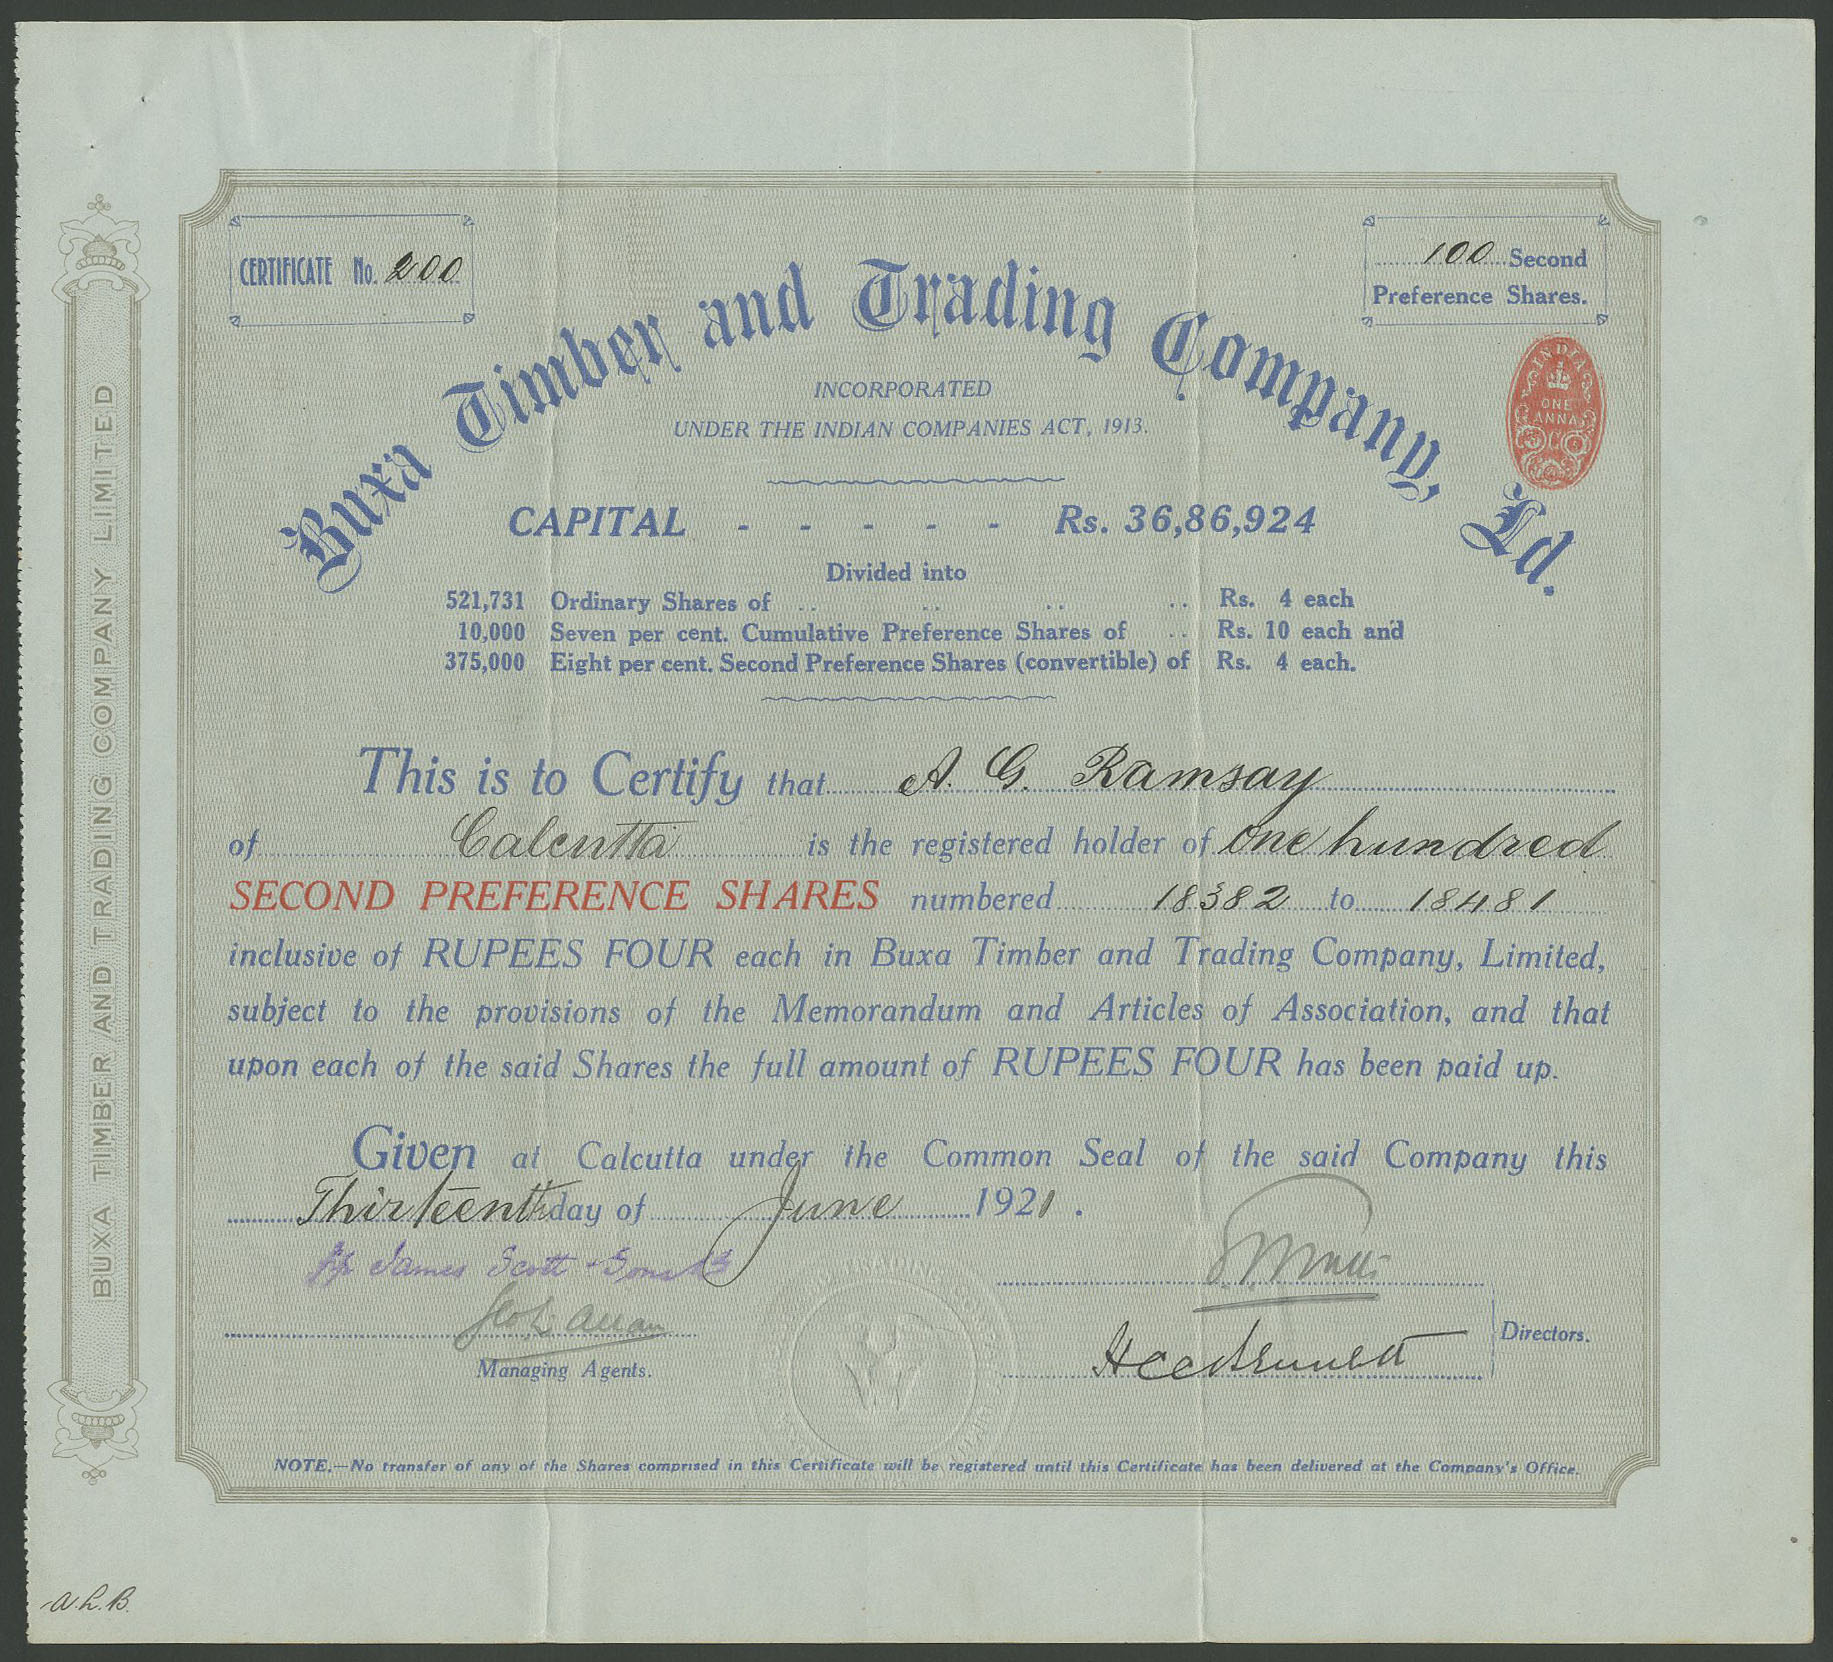 CERTIFICATE No. 200
100 Second
Preference Shares.
Buxa Timber and Trading Company, Ld.
INDIA
ONE
ANNA
INCORPORATED
UNDER THE INDIAN COMPANIES ACT, 1913.
CAPITAL - - - - - Rs. 36,86,924
Divided into
521,731 Ordinary Shares of .. .. .. .. Rs. 4 each
10,000 Seven per cent. Cumulative Preference Shares of .. Rs. 10 each and
375,000 Eight per cent. Second Preference Shares (convertible) of Rs. 4 each.
This is to Certify that A. G. Ramsay
of Calcutta is the registered holder of One hundred
SECOND PREFERENCE SHARES numbered 18382 to 18481
inclusive of RUPEES FOUR each in Buxa Timber and Trading Company, Limited,
subject to the provisions of the Memorandum and Articles of Association, and that
upon each of the said Shares the full amount of RUPEES FOUR has been paid up.
Given at Calcutta under the Common Seal of the said Company this
Thirteenth day of June 1921.
James Scott
Managing Agents.
Directors.
NOTE.—No transfer of any of the Shares comprised in this Certificate will be registered until this Certificate has been delivered at the Company's Office.
BUXA TIMBER AND TRADING COMPANY LIMITED
A.L.B.